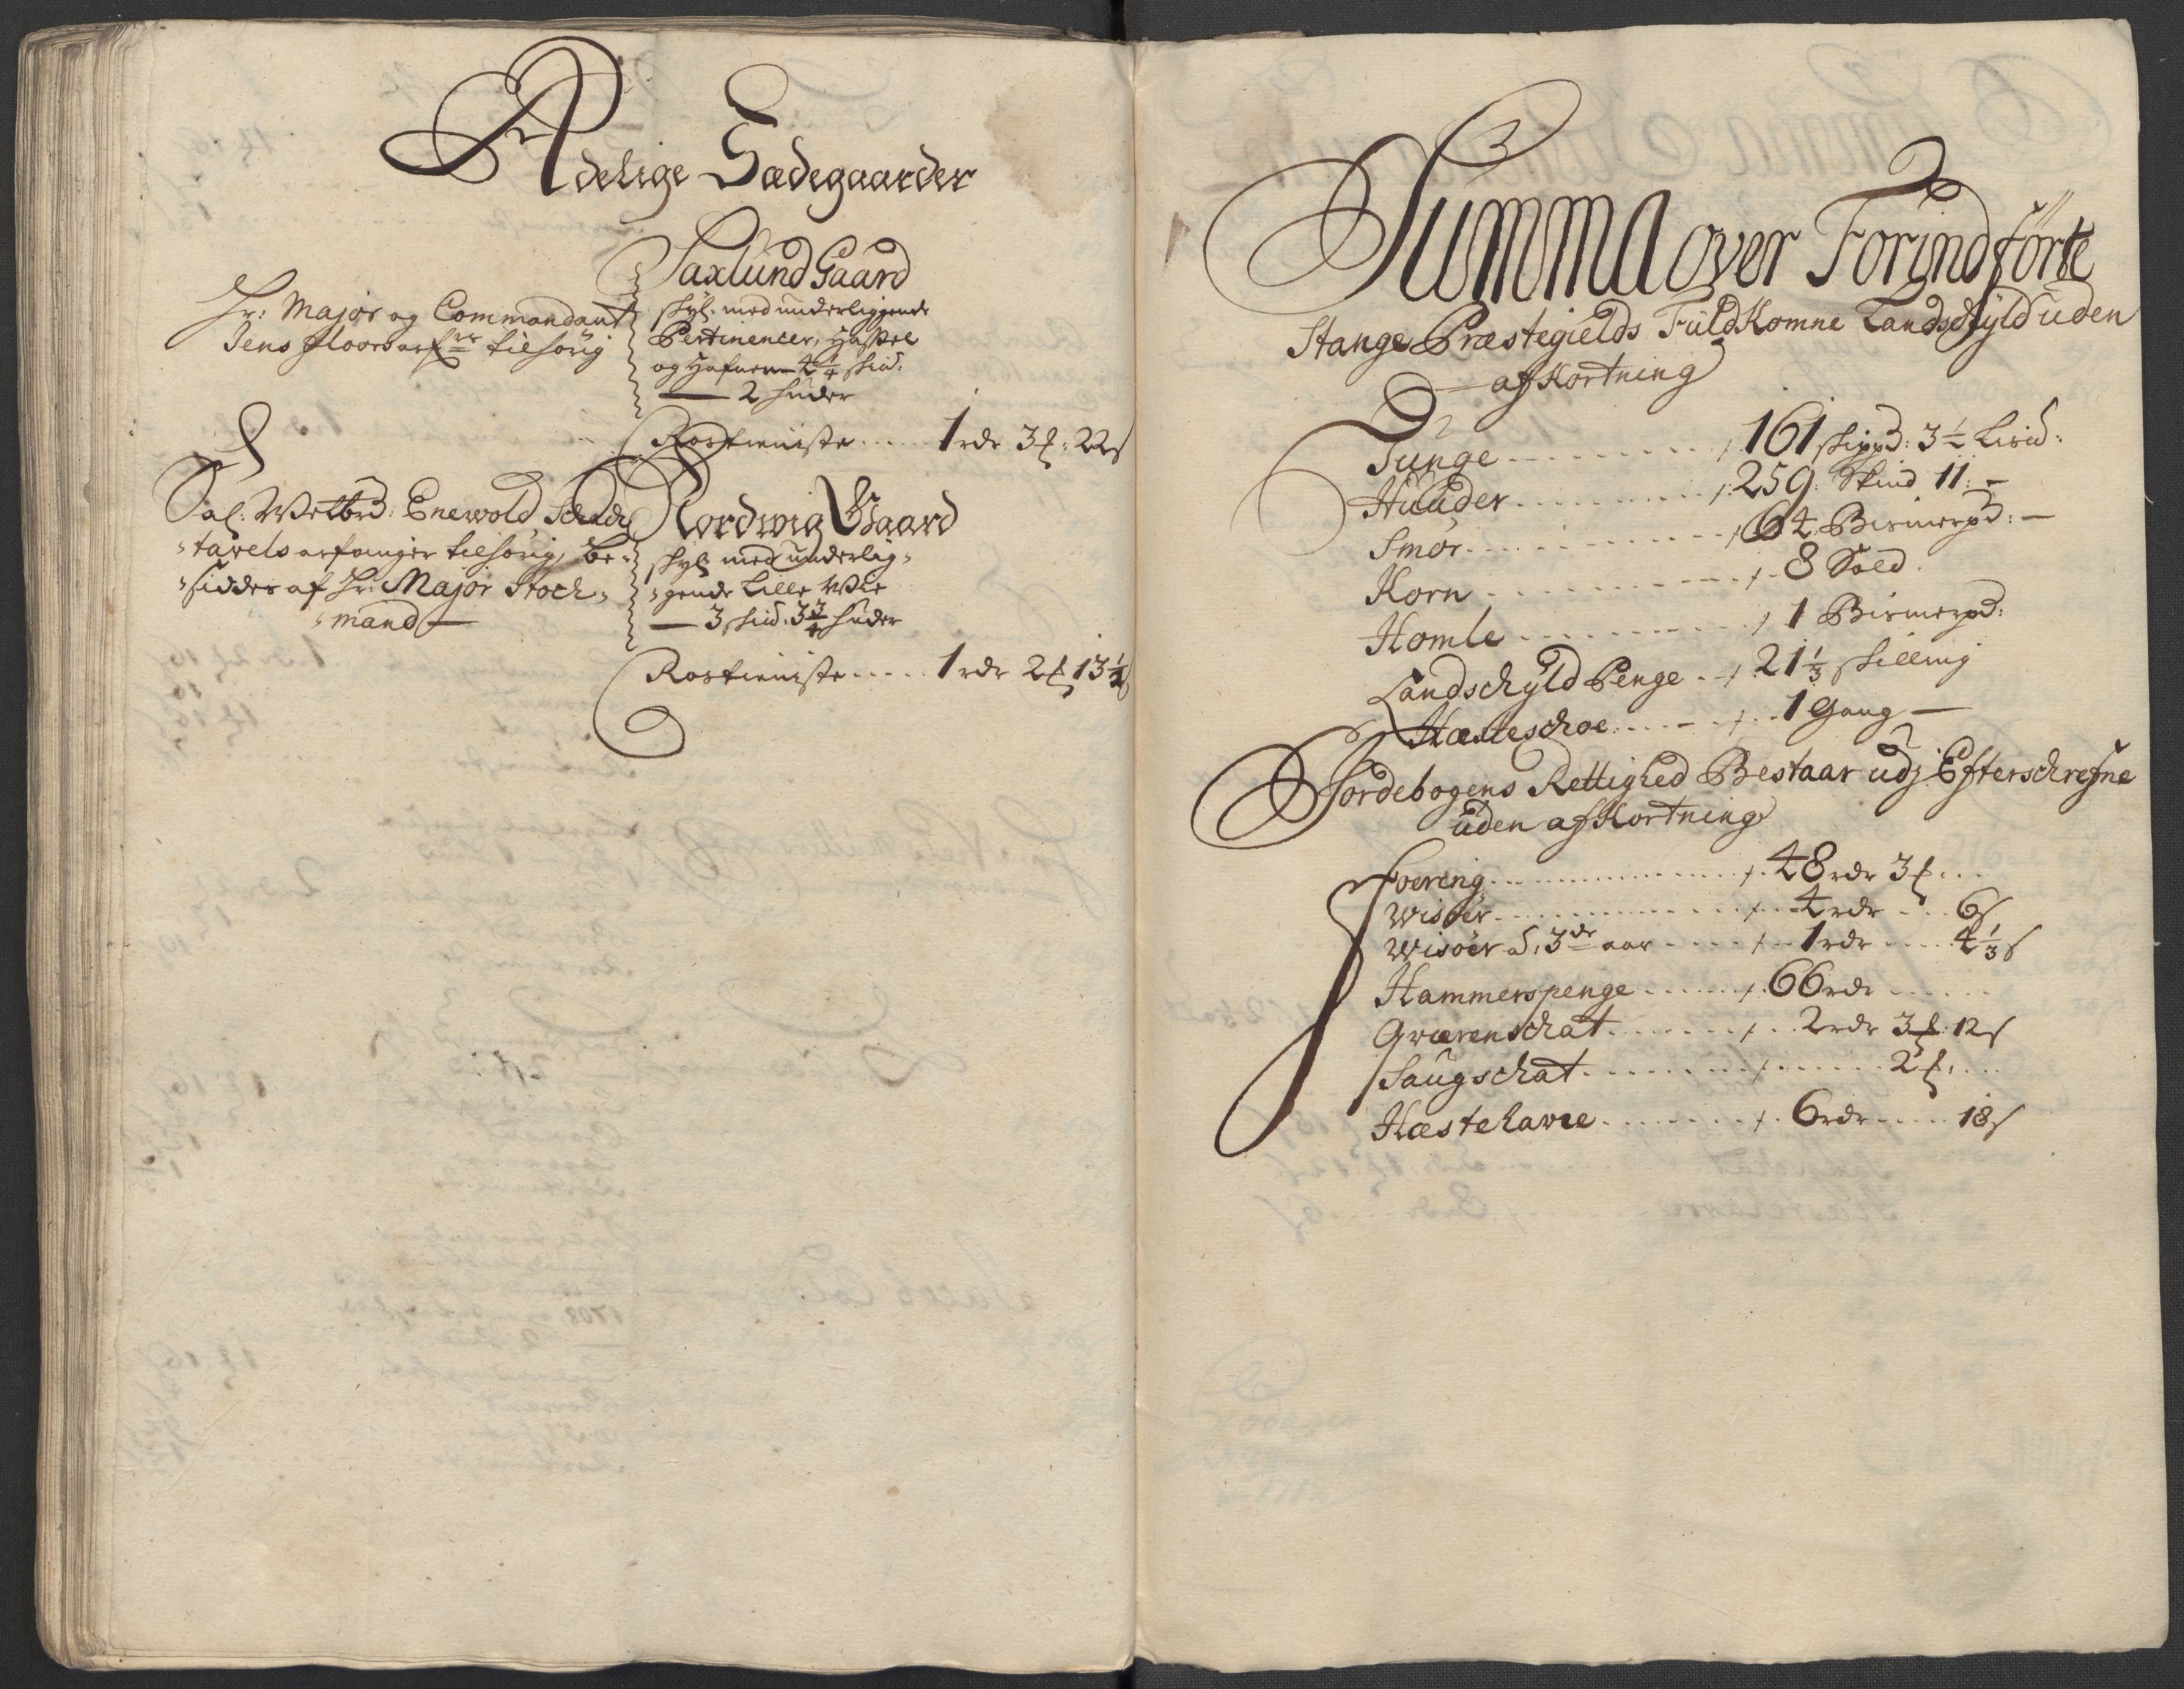 Adelige Sædegaarder
Saxlund Gaard
Hr: Major og Commandant
Jens Floors arf:rr tilhørig
skyl. med underliggende
Pertinencier,
og Hafnen 4 1/4 skid.
2 huder
Rostieniste ..... 1 rdr 3 f: 22 s
Sal: Welbrd: Enewold
tavels arfvinger tilhørig, be-
siddes af Hr: Major Stoch-
mand
Nordwig Gaard
skyl med underlig-
gende Lille
3 skid. 3 3/4 huder
Rostieniste ..... 1 rdr 2 f 13 1/2
Summa over Forindførte
Stange Præstegields Fuldkomne Landschyld uden
afkortning
Tunge ........ 161 skippd: 3 1/2 Lisid:
Huuder ........ 259. Skind 11: -
Smør ........ 64. Bismerpd: -
Korn ........ 8 Sold.
Homle ........ 1 Bismerpd:
Landschyld Penge .. 21 1/3 skilling
Hæsteschoe ...... 1 Gang
Jordebogens Rettighed Bestaar udj Efterschrefne
uden afkortning
Foering ........ 48 rdr 3 f ...
Wisøer ........ 4 rdr ... 6 s
Wisøer d. 3de aar ..... 1 rdr .... 4 1/3 s
Hammerspenge ...... 66 rdr ......
Qværenschat ....... 2 rdr 3 f: 12 s
Saugschat ........ 2 f: ...
Hæstehavre ....... 6 rdr .... 18 s